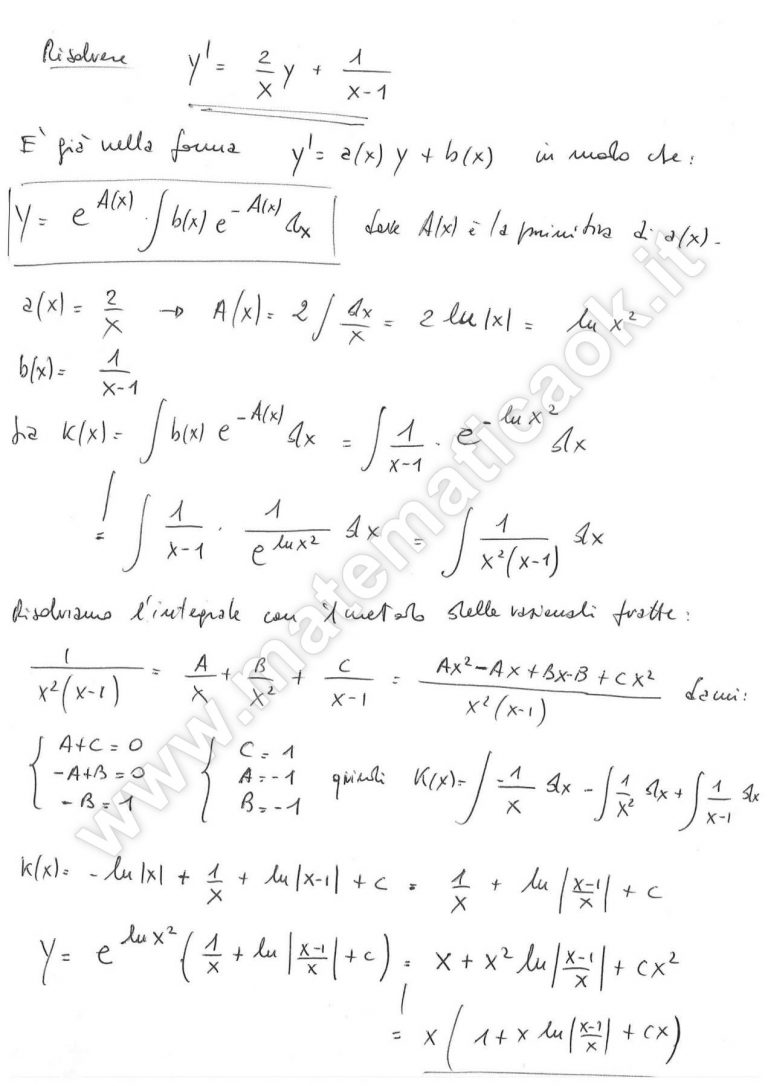 Risolvere y' = 2/x y + 1/(x-1)
E' già nella forma y' = a(x) y + b(x) in modo che:
y = e^{A(x)} · ∫ b(x) e^{-A(x)} dx dove A(x) è la primitiva di a(x).
a(x) = 2/x → A(x) = 2 ∫ dx/x = 2 ln|x| = ln x²
b(x) = 1/(x-1)
Sia K(x) = ∫ b(x) e^{-A(x)} dx = ∫ 1/(x-1) · e^{-ln x²} dx
= ∫ 1/(x-1) · 1/e^{ln x²} dx = ∫ 1/(x²(x-1)) dx
Risolviamo l'integrale con il metodo delle razionali fratte:
1/(x²(x-1)) = A/x + B/x² + C/(x-1) = (Ax²-Ax+Bx-B+Cx²)/(x²(x-1)) da cui:
{ A+C=0 { C=1
-A+B=0 A=-1 quindi K(x) = ∫ -1/x dx - ∫ 1/x² dx + ∫ 1/(x-1) dx
-B=1 B=-1
K(x) = -ln|x| + 1/x + ln|x-1| + c = 1/x + ln|(x-1)/x| + c
y = e^{ln x²} (1/x + ln|(x-1)/x| + c) = x + x² ln|(x-1)/x| + cx²
= x (1 + x ln|(x-1)/x| + cx)
www.matematicaok.it